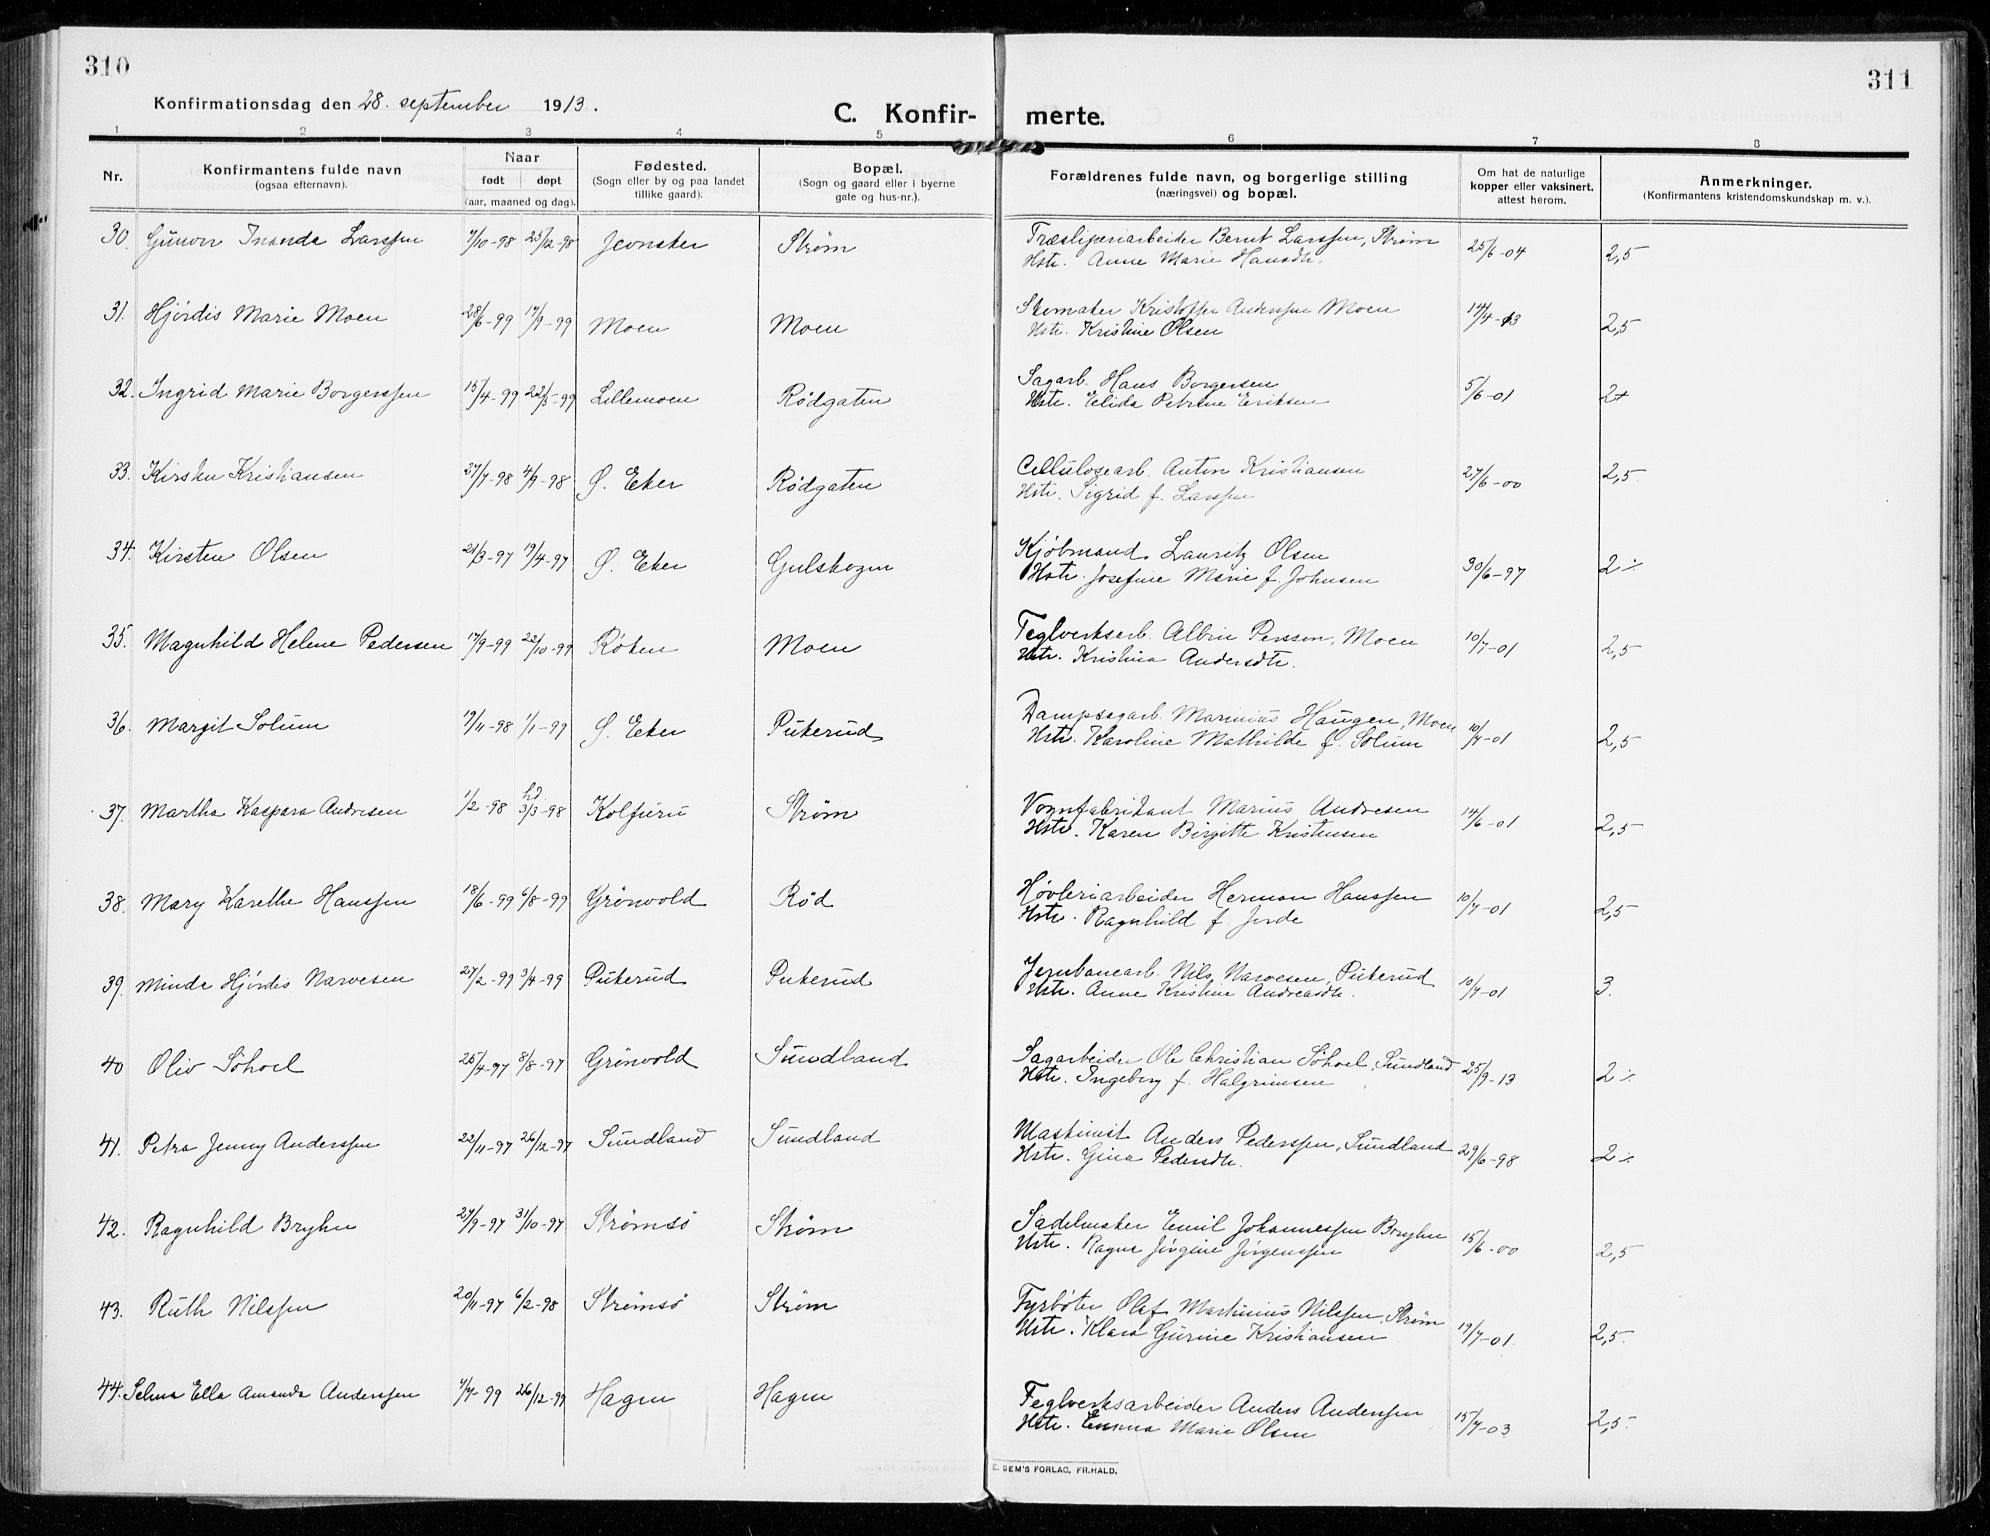 310
311
Konfirmationsdag den 28. september 1913.
C. Konfir- merte.
1 2 3 4 5 6 7 8
Nr. Konfirmantens fulde navn (ogsaa efternavn). Naar født døpt (aar, maaned og dag). Fødested. (Sogn eller by og paa landet tillike gaard). Bopæl. (Sogn og gaard eller i byerne gate og hus-nr.). Forældrenes fulde navn, og borgerlige stilling (næringsvei) og bopæl. Om hat de naturlige kopper eller vaksinert, attest herom. Anmerkninger. (Konfirmantens kristendomskundskap m. v.).
30. Gunvor Inanda Larssen 7/10-98 25/12-98 Strøm Træsliperiarbeider Bernt Larssen, Strøm 25/6-04 2,5
Hstr. Anne Marie Hansdtr.
31. Hjördis Marie Moen 28/6-99 17/9-99 Moen Moen Skomaker Kristoffer Anderssen Moen 14/4-13 2,5
Hstr. Kristine Olsen
32. Ingrid Marie Borgerssen 15/4-99 22/5-99 Lillemoen Rödgaten Sagarb. Hans Borgersen 5/6-01 2+
Hstr. Elida Petrine Eriksen
33. Kirsten Kristiansen 27/7-98 4/9-98 Ø. Eker Rödgaten Cellulosearb. Anton Kristiansen 27/6-00 2,5
Hstr. Sigrid f. Larssen
34. Kirsten Olsen 21/3-97 19/4-97 Ø. Eker Gulskogen Kjöbmand Lauritz Olsen 30/6-97 2 ⁒
Hstr. Josefine Marie f. Johnsen
35. Magnhild Helene Pedersen 17/9-99 22/10-99 Röken Moen Teglverksarb. Albin Persson, Moen 10/7-01 2,5
Hstr. Kristina Andersdtr.
36. Margit Solum 19/11-98 1/1-99 Ø. Eker Pukerud Dampsagarb. Marinius Haugen, Moen 10/7-01 2,5
Hstr. Karoline Mathilde f. Solum
37. Martha Kaspara Andresen 1/2-98 hd 3/3-98 Kolfuru Strøm Vognfabrikant Marius Andresen 14/6-01 2,5
Hstr. Karen Birgitte Kristensen
38. Mary Karethe Hanssen 18/6-99 6/8-99 Grönvold Röd Høvleriarbeider Herman Hanssen 10/7-01 2,5
Hstr. Ragnhild f. Jorde
39. Minda Hjördis Narvesen 27/2-99 3/4-99 Pukerud Pukerud Jernbanearb. Nils Narvesen, Pukerud 10/7-01 3.
Hstr. Anne Kristine Andreasdtr.
40 Oliv Söhoel 25/4-97 8/8-97 Grönvold Sundland Sagarbeider Ole Christian Söhoel, Sundland 25/9-13 2 ⁒
Hstr. Ingeborg f. Halgrimsen
41. Petra Jenny Anderssen 22/11-97 26/12-97 Sundland Sundland Maskinist Anders Pederssen, Sundland 29/6-98 2 ⁒
Hstr. Gina Pedersdtr.
42. Ragnhild Bryhn 27/9-97 31/10-97 Strömsö Strøm Sadelmaker Emil Johannessen Bryhn 15/6-00 2,5
Hstr. Ragna Jörgine Jörgenssen
43. Ruth Nilssen 20/11-97 6/2-98 Strömsö Strøm Fyrböter Olaf Martinius Nilssen, Strøm 19/7-01. 2,5
Hstr. Klara Gurine Kristiansen
44. Selma Ella Amanda Anderssen 7/7-99 26/12-99 Hagen Hagen Teglverksarbeider Anders Anderssen 15/7-03 2,5
Hstr. Emma Marie Olsen
E. SEM'S FORLAG, FR.HALD.